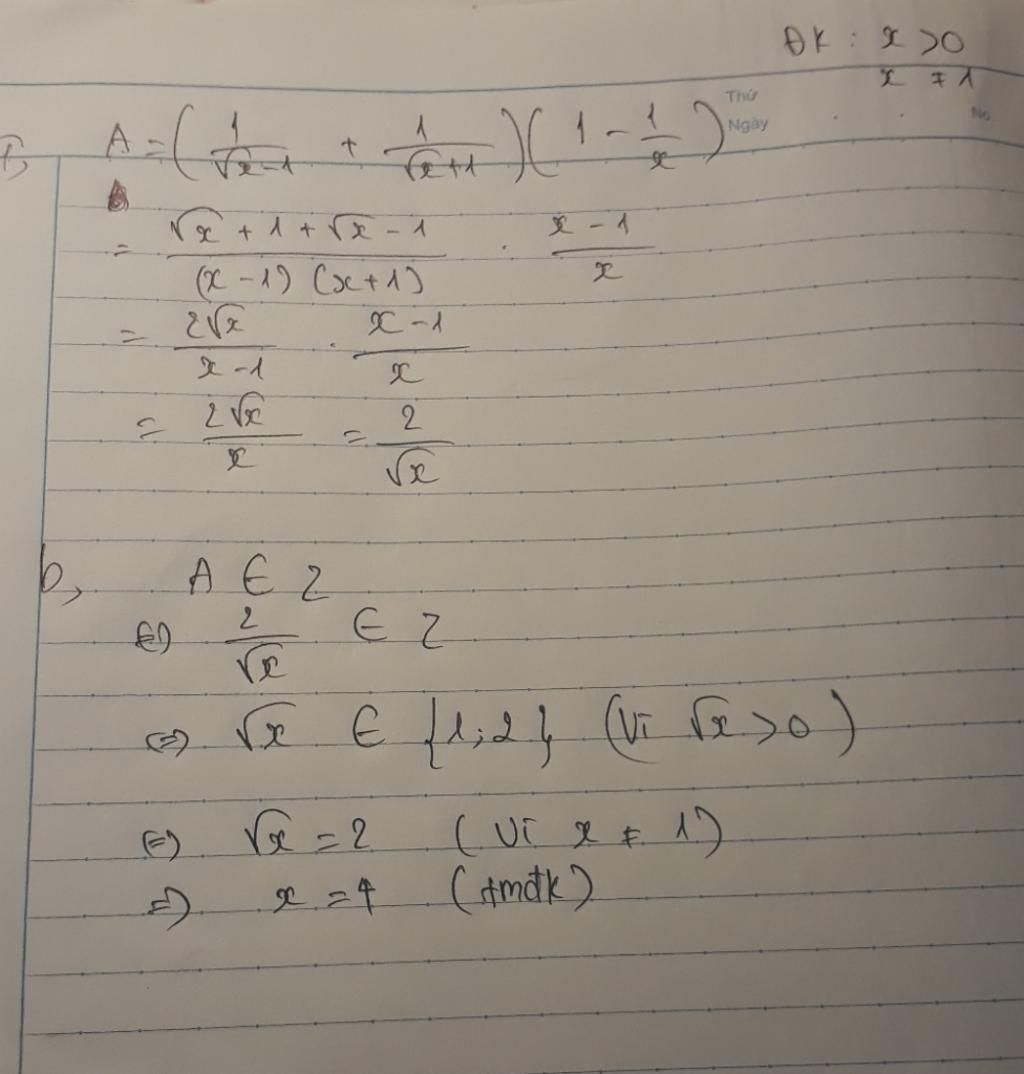 ĐK : x > 0
x ≠ 1
Thứ
Ngày
No
A = (1/(√x-1) + 1/(√x+1))(1 - 1/x)
= (√x + 1 + √x - 1)/((x-1)(x+1)) . (x-1)/x
= 2√x/(x-1) . (x-1)/x
= 2√x/x = 2/√x
b, A ∈ Z
⇔ 2/√x ∈ Z
⇔ √x ∈ {1;2} (Vì √x > 0)
⇔ √x = 2 (Vì x ≠ 1)
⇒ x = 4 (tmđk)